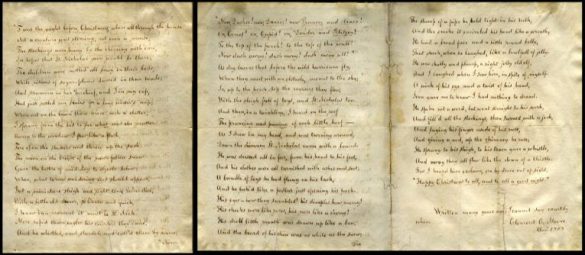 'Twas the night before Christmas, when all through the house
Not a creature was stirring, not even a mouse;
The stockings were hung by the chimney with care,
In hopes that St. Nicholas soon would be there;
The children were nestled all snug in their beds,
While visions of sugar-plums danced in their heads;
And Mamma in her 'kerchief, and I in my cap,
Had just settled our brains for a long winter's nap;
When out on the lawn there arose such a clatter,
I sprang from the bed to see what was the matter.
Away to the window I flew like a flash,
Tore open the shutters and threw up the sash.
The moon on the breast of the new-fallen snow
Gave the lustre of mid-day to objects below,
When, what to my wondering eyes should appear,
But a miniature sleigh, and eight tiny reindeer,
With a little old driver, so lively and quick,
I knew in a moment it must be St. Nick.
More rapid than eagles his coursers they came,
And he whistled, and shouted, and called them by name;
"Now, Dasher! now, Dancer! now, Prancer and Vixen!
On, Comet! on, Cupid! on, Donder and Blitzen!
To the top of the porch! to the top of the wall!
Now dash away! dash away! dash away all!"
As dry leaves that before the wild hurricane fly,
When they meet with an obstacle, mount to the sky;
So up to the house-top the coursers they flew,
With the sleigh full of toys, and St. Nicholas too.
And then, in a twinkling, I heard on the roof
The prancing and pawing of each little hoof—
As I drew in my head, and was turning around,
Down the chimney St. Nicholas came with a bound.
He was dressed all in fur, from his head to his foot,
And his clothes were all tarnished with ashes and soot;
A bundle of toys he had flung on his back,
And he looked like a pedlar just opening his pack.
His eyes—how they twinkled! his dimples how merry!
His cheeks were like roses, his nose like a cherry!
His droll little mouth was drawn up like a bow,
And the beard of his chin was as white as the snow;
The stump of a pipe he held tight in his teeth,
And the smoke it encircled his head like a wreath;
He had a broad face and a little round belly,
That shook, when he laughed, like a bowlfull of jelly.
He was chubby and plump, a right jolly old elf,
And I laughed when I saw him, in spite of myself;
A wink of his eye and a twist of his head,
Soon gave me to know I had nothing to dread;
He spoke not a word, but went straight to his work,
And fill'd all the stockings; then turned with a jerk,
And laying his finger aside of his nose,
And giving a nod, up the chimney he rose;
He sprang to his sleigh, to his team gave a whistle,
And away they all flew like the down of a thistle.
But I heard him exclaim, ere he drove out of sight,
"Happy Christmas to all, and to all a good night."
Clement C. Moore